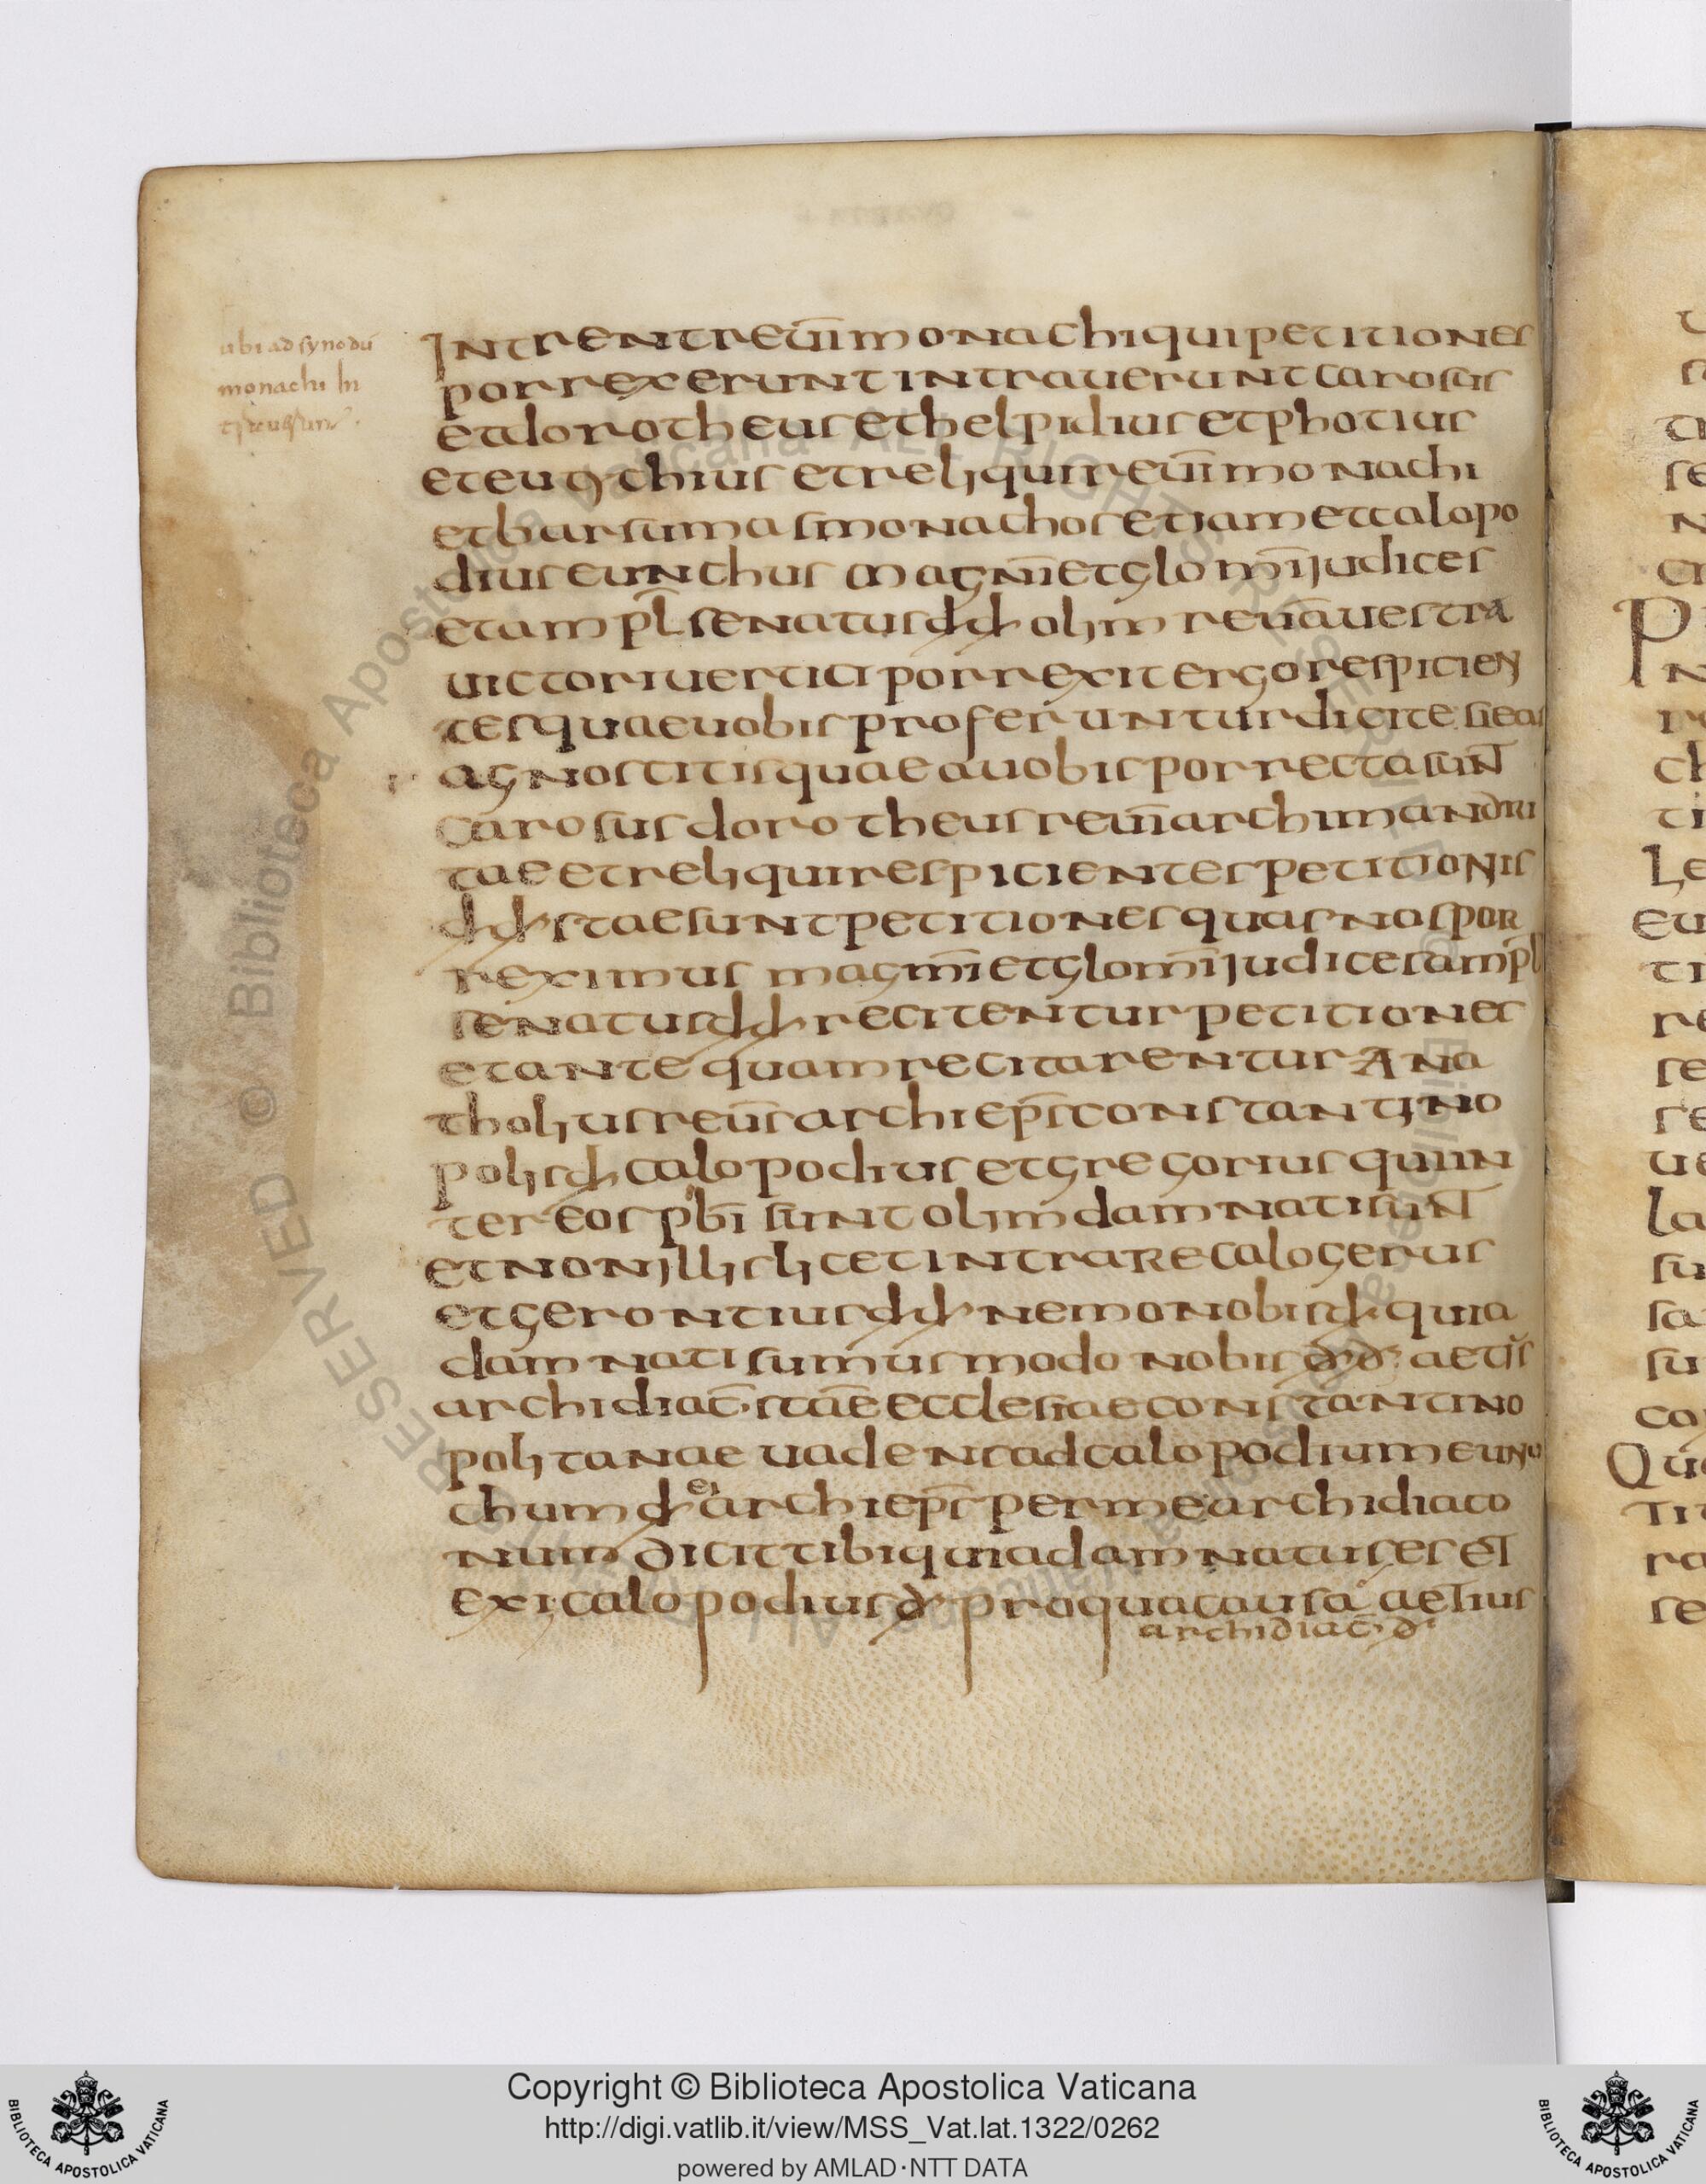 ubi ad synodū
monachi In
Intrent reūmi monachi qui petitiones
porrexerunt intraverunt carosus
et dorotheus et helpidius et photius
et eutychius et reliqui reūmi monachi
et barsumas monachos etiam et calopo
dius eunchus magnī et glomī judices
et ampl senatus dd olim reūa vestra
victori vertici porrexit ergo respicien
tes quae vobis proferuntur dicite si eas
agnoscitis quae a vobis porrecta sunt
carosus dorotheus reūi archimandri
tae et reliqui respicientes petitionis
dd istae sunt petitiones quas nos por
reximus magnī et glomī judices ampl
senatus dd recitentur petitiones
et ante quam recitarentur ana
tholius reūs archieps constantino
polis d calopodius et gregorius qui in
ter eos pbi sunt olim damnati sunt
et non illis licet intrare calogerus
et gerontius dd nemo nobis d quia
damnati sumus modo nobis dd aetis
archidiac stae ecclesiae constantino
politanae vadens ad calopodium eunu
chum d ei archieps per me archidiaco
num dicit tibi quia damnatus es et
exi calopodius d pro qua causa aetius
archidiac d
Copyright © Biblioteca Apostolica Vaticana
http://digi.vatlib.it/view/MSS_Vat.lat.1322/0262
powered by AMLAD·NTT DATA
BIBLIOTECA APOSTOLICA VATICANA
BIBLIOTECA APOSTOLICA VATICANA